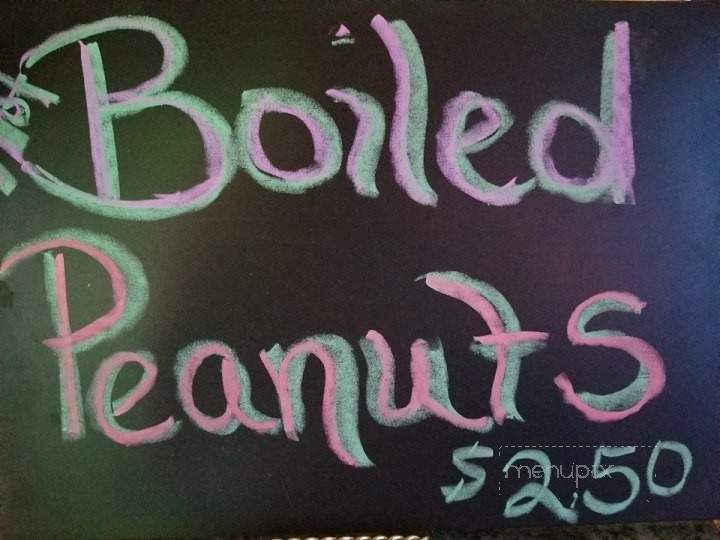 Boiled
Peanuts
$2.50
menupix